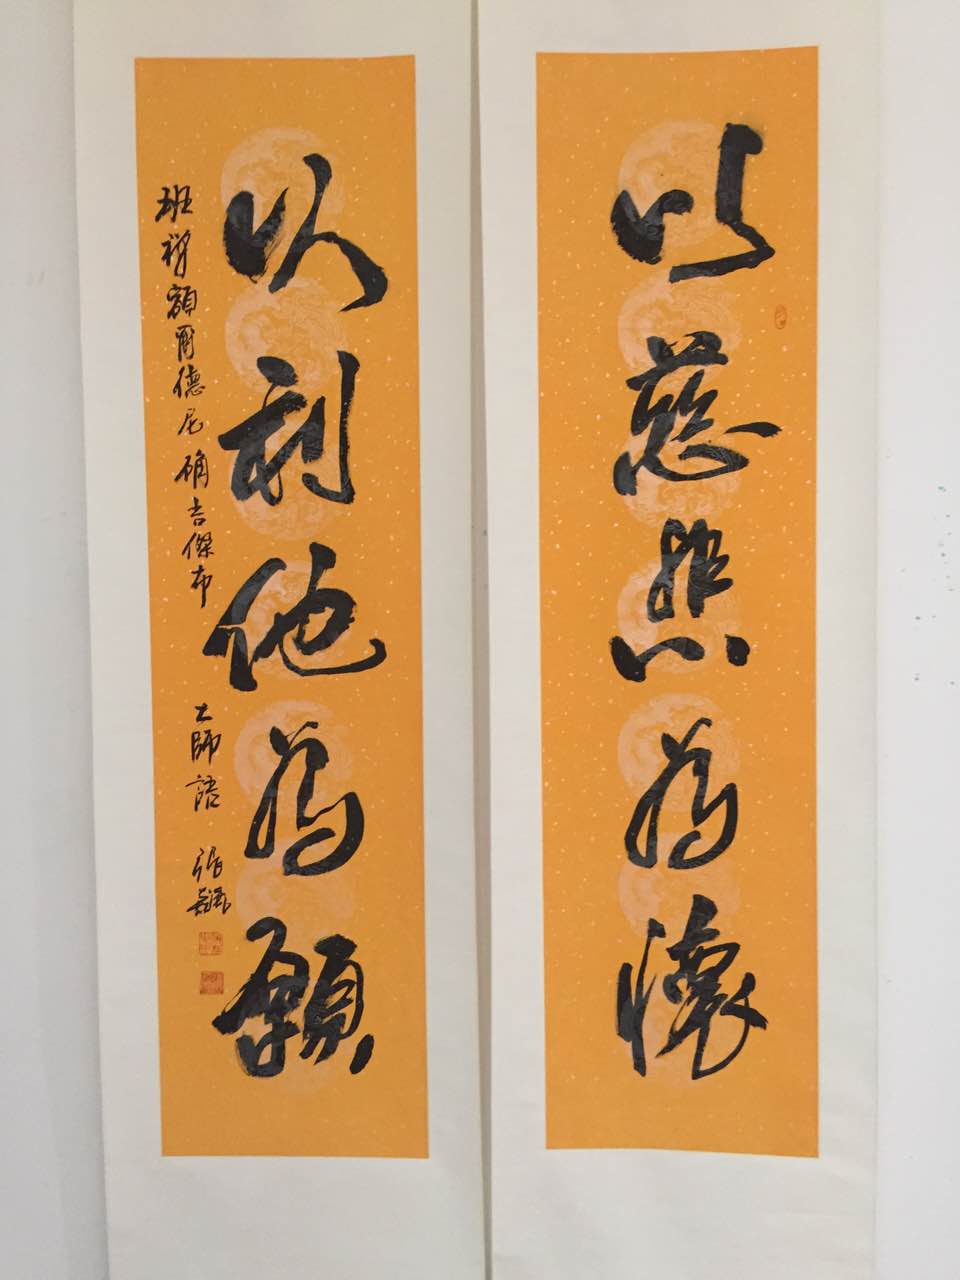 以慈悲為懷
以利他為願
班禪額爾德尼確吉傑布
大師語
張